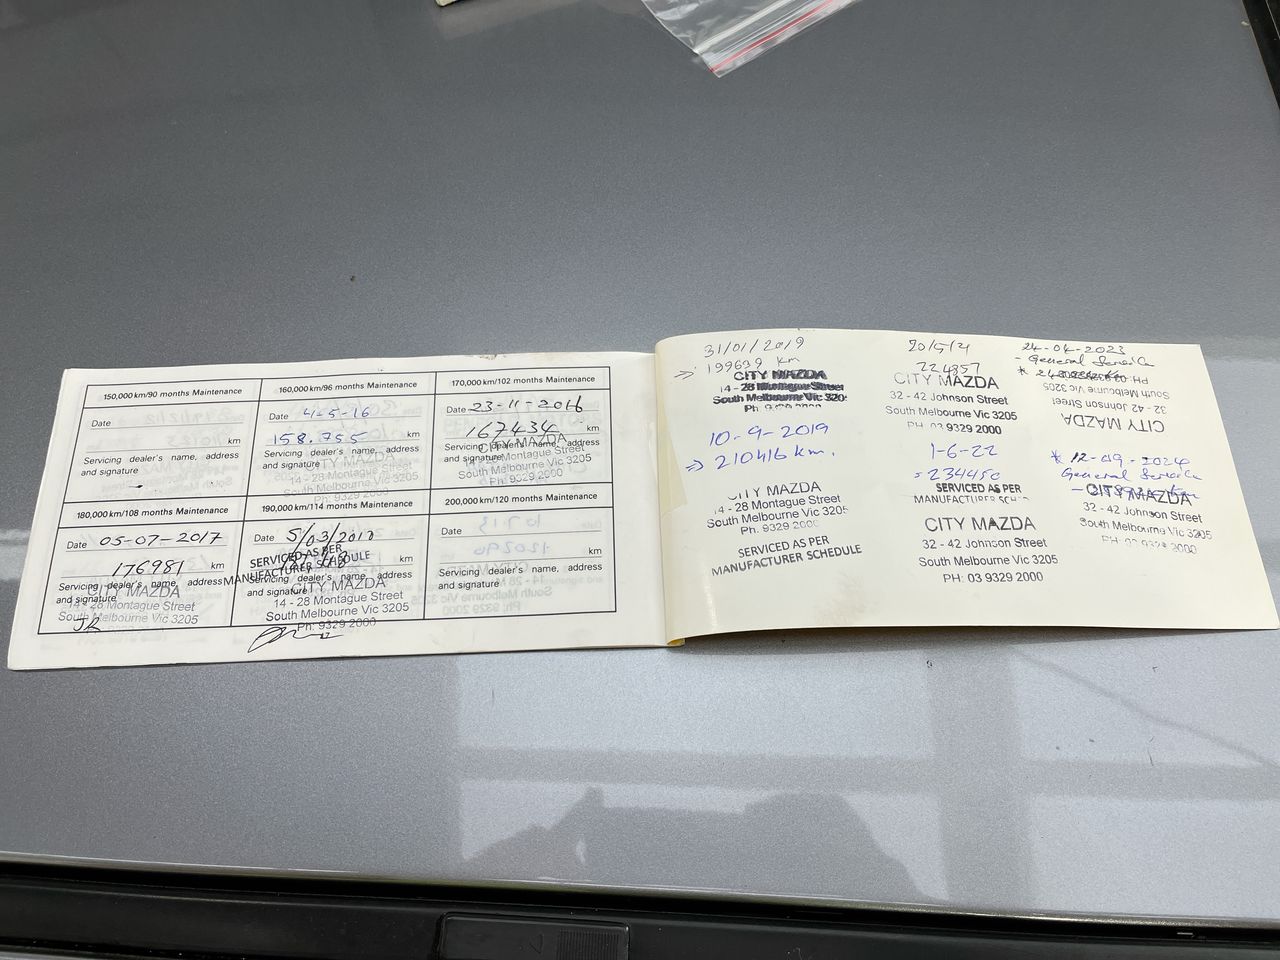 150,000 km/90 months Maintenance
Date
km
Servicing dealer's name, address
and signature
160,000 km/96 months Maintenance
Date 4-5-16
158.755 km
Servicing dealer's name, address
and signature
CITY MAZDA
14 - 28 Montague Street
South Melbourne Vic 3205
Ph: 9329 2000
170,000 km/102 months Maintenance
Date 23-11-2016
167434 km
Servicing dealer's name, address
and signature
CITY MAZDA
14 - 28 Montague Street
South Melbourne Vic 3205
Ph: 9329 2000
180,000 km/108 months Maintenance
Date 05-07-2017
176981 km
Servicing dealer's name, address
and signature
CITY MAZDA
14 - 28 Montague Street
South Melbourne Vic 3205
190,000 km/114 months Maintenance
Date
km
SERVICED AS PER
MANUFACTURER SCHEDULE
Servicing dealer's name, address
and signature
CITY MAZDA
14 - 28 Montague Street
South Melbourne Vic 3205
Ph: 9329 2000
200,000 km/120 months Maintenance
Date
km
Servicing dealer's name, address
and signature
31/01/2019
km
CITY MAZDA
14 - 28 Montague Street
South Melbourne Vic 320
10-9-2019
210416 km.
CITY MAZDA
14 - 28 Montague Street
South Melbourne Vic 3205
Ph. 9329 2000
SERVICED AS PER
MANUFACTURER SCHEDULE
224357
CITY MAZDA
32 - 42 Johnson Street
South Melbourne Vic 3205
PH 03 9329 2000
1-6-22
234450
SERVICED AS PER
MANUFACTURERS SCH
CITY MAZDA
32 - 42 Johnson Street
South Melbourne Vic 3205
PH: 03 9329 2000
24-04-2023
- General Service
South Melbourne Vic 3205
32 - 42 Johnson Street
CITY MAZDA
* 12-09-2024
General Service
CITY MAZDA
32 - 42 Johnson Street
South Melbourne Vic 3205
PH 03 9329 2000